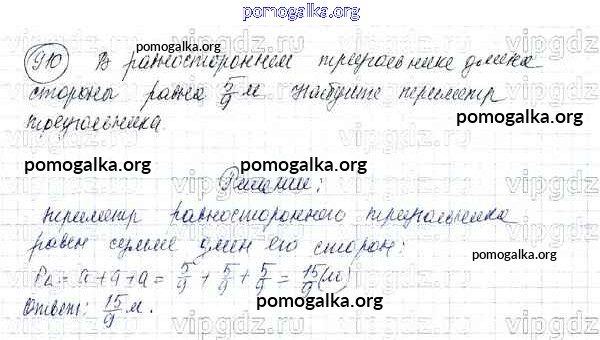 pomogalka.org
910 В равностороннем треугольнике длина
pomogalka.org pomogalka.org
стороны равна 5/9 м. Найдите периметр
треугольника.
pomogalka.org pomogalka.org pomogalka.org
Решение:
периметр равностороннего треугольника
равен сумме длин его сторон:
P△ = a+a+a = 5/9 + 5/9 + 5/9 = 15/9 (м)
pomogalka.org pomogalka.org
Ответ: 15/9 м.
pomogalka.org